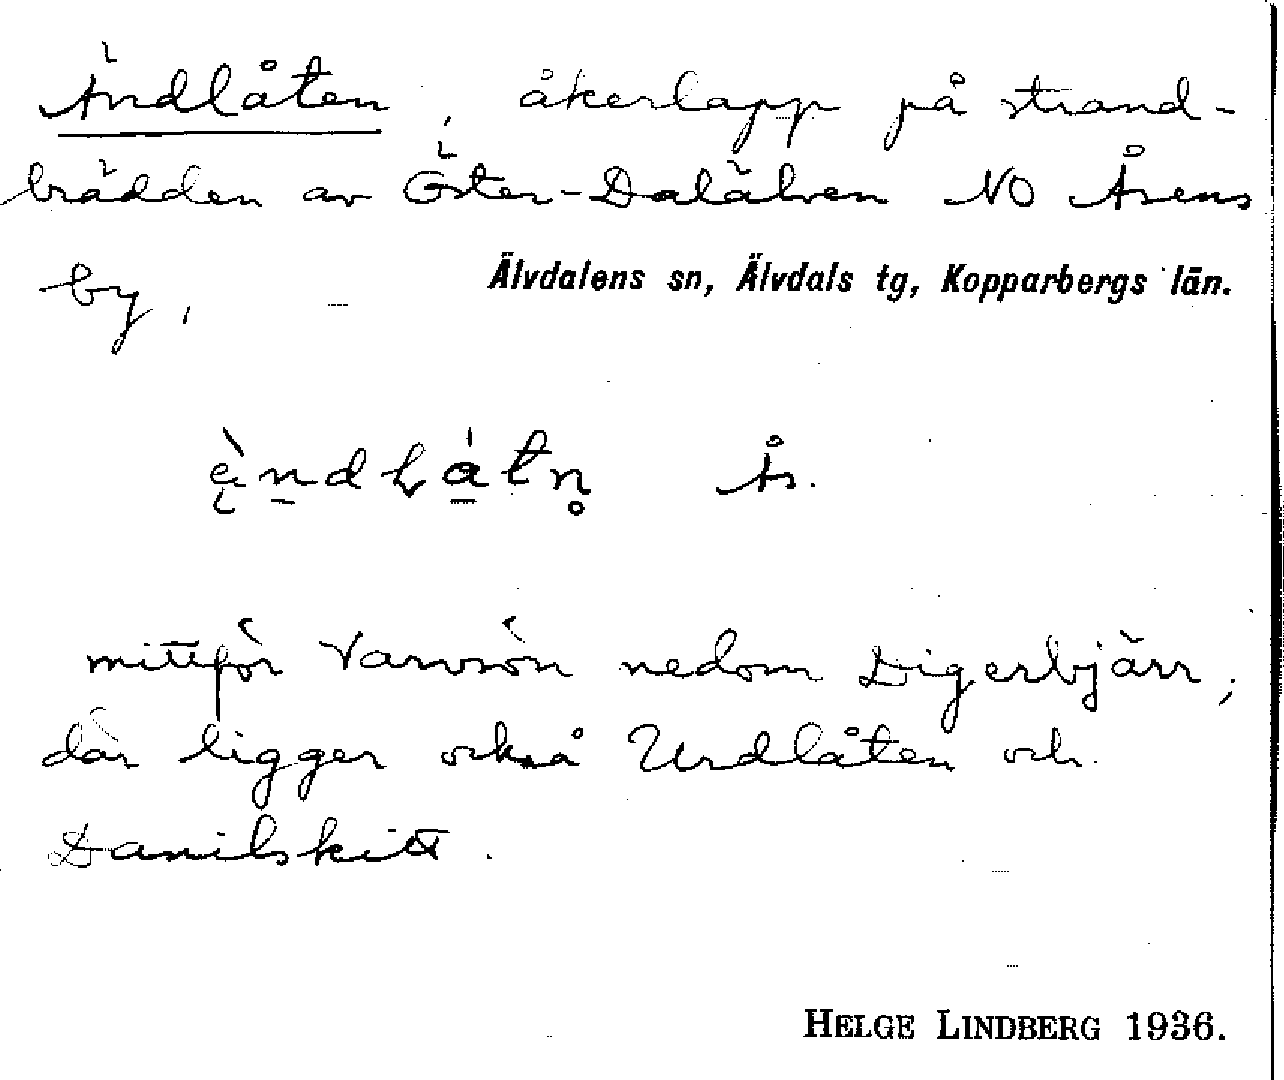 Ändlåten, åkerlapp på strand-
brädden av Öster-Dalälven NO Åsens
by,
Älvdalens sn, Älvdals tg, Kopparbergs län.
Ås.
mittför Varvsön nedom Digerbjärr,
där ligger också Urdlåten och
Danilskitt.
HELGE LINDBERG 1936.